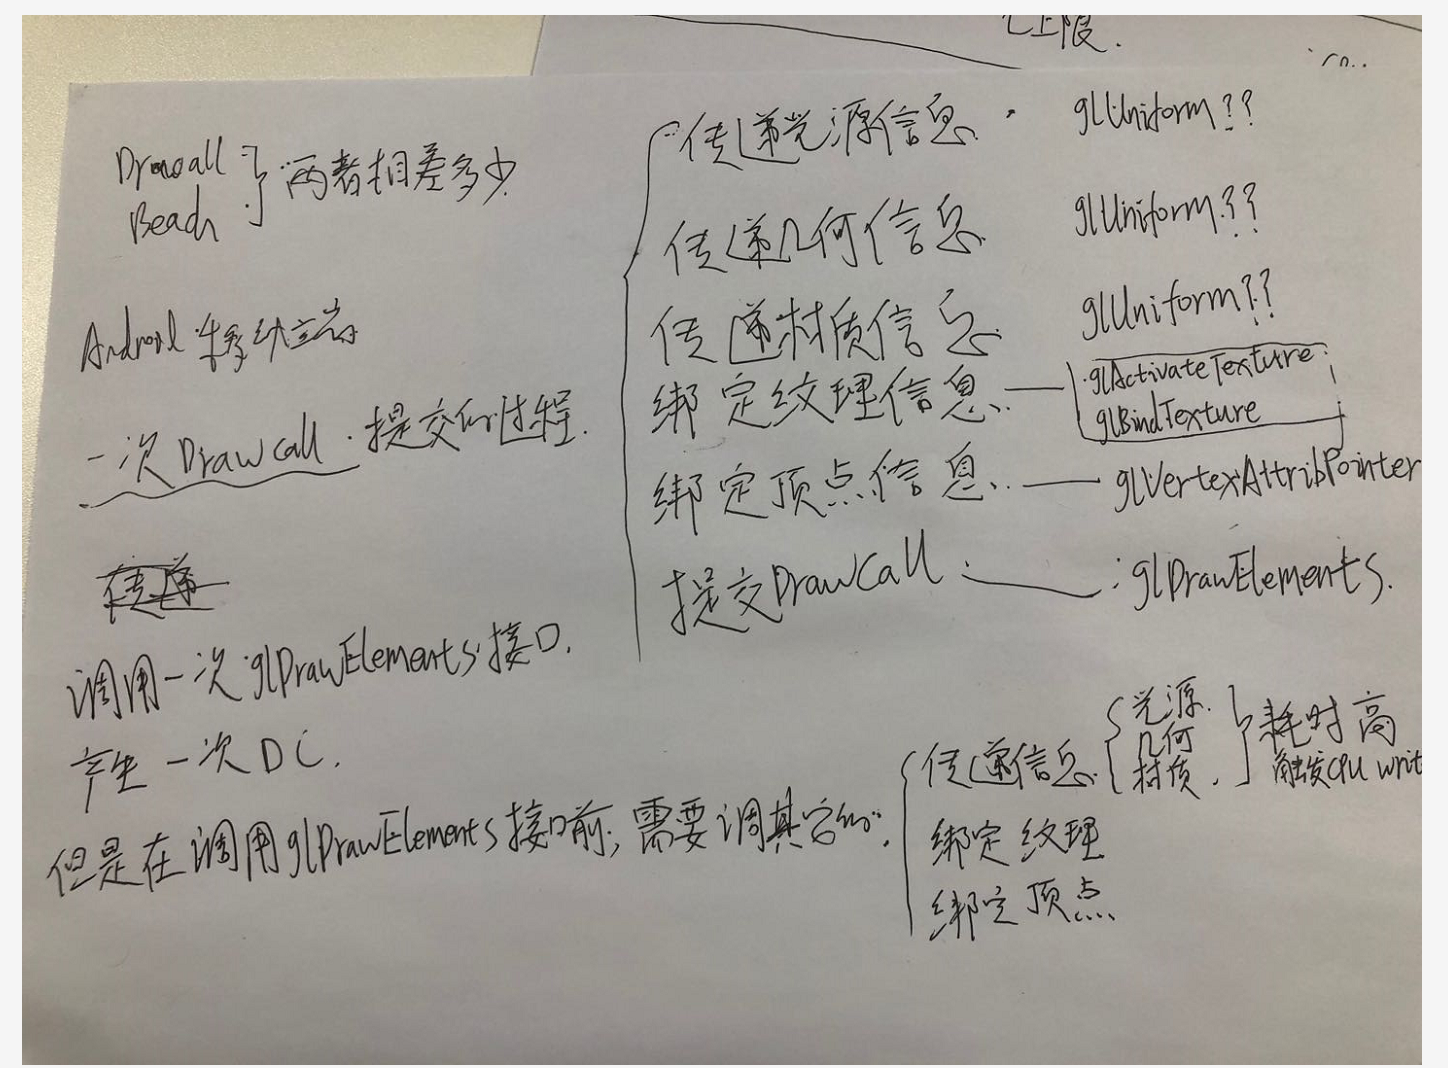 上限.
Drawcall
Beach
两者相差多少
Android
一次 Drawcall 提交的过程.
传递光源信息 glUniform??
传递几何信息 glUniform??
传递材质信息 glUniform??
绑定纹理信息 glActivateTexture
glBindTexture
绑定顶点信息 glVertexAttribPointer
提交DrawCall glDrawElements.
调用一次 glDrawElements 接口.
产生一次 DC.
但是在调用 glDrawElements 接口前, 需要调其它的.
传递信息
光源.
几何
材质.
耗时高
触发CPU writ
绑定纹理
绑定顶点